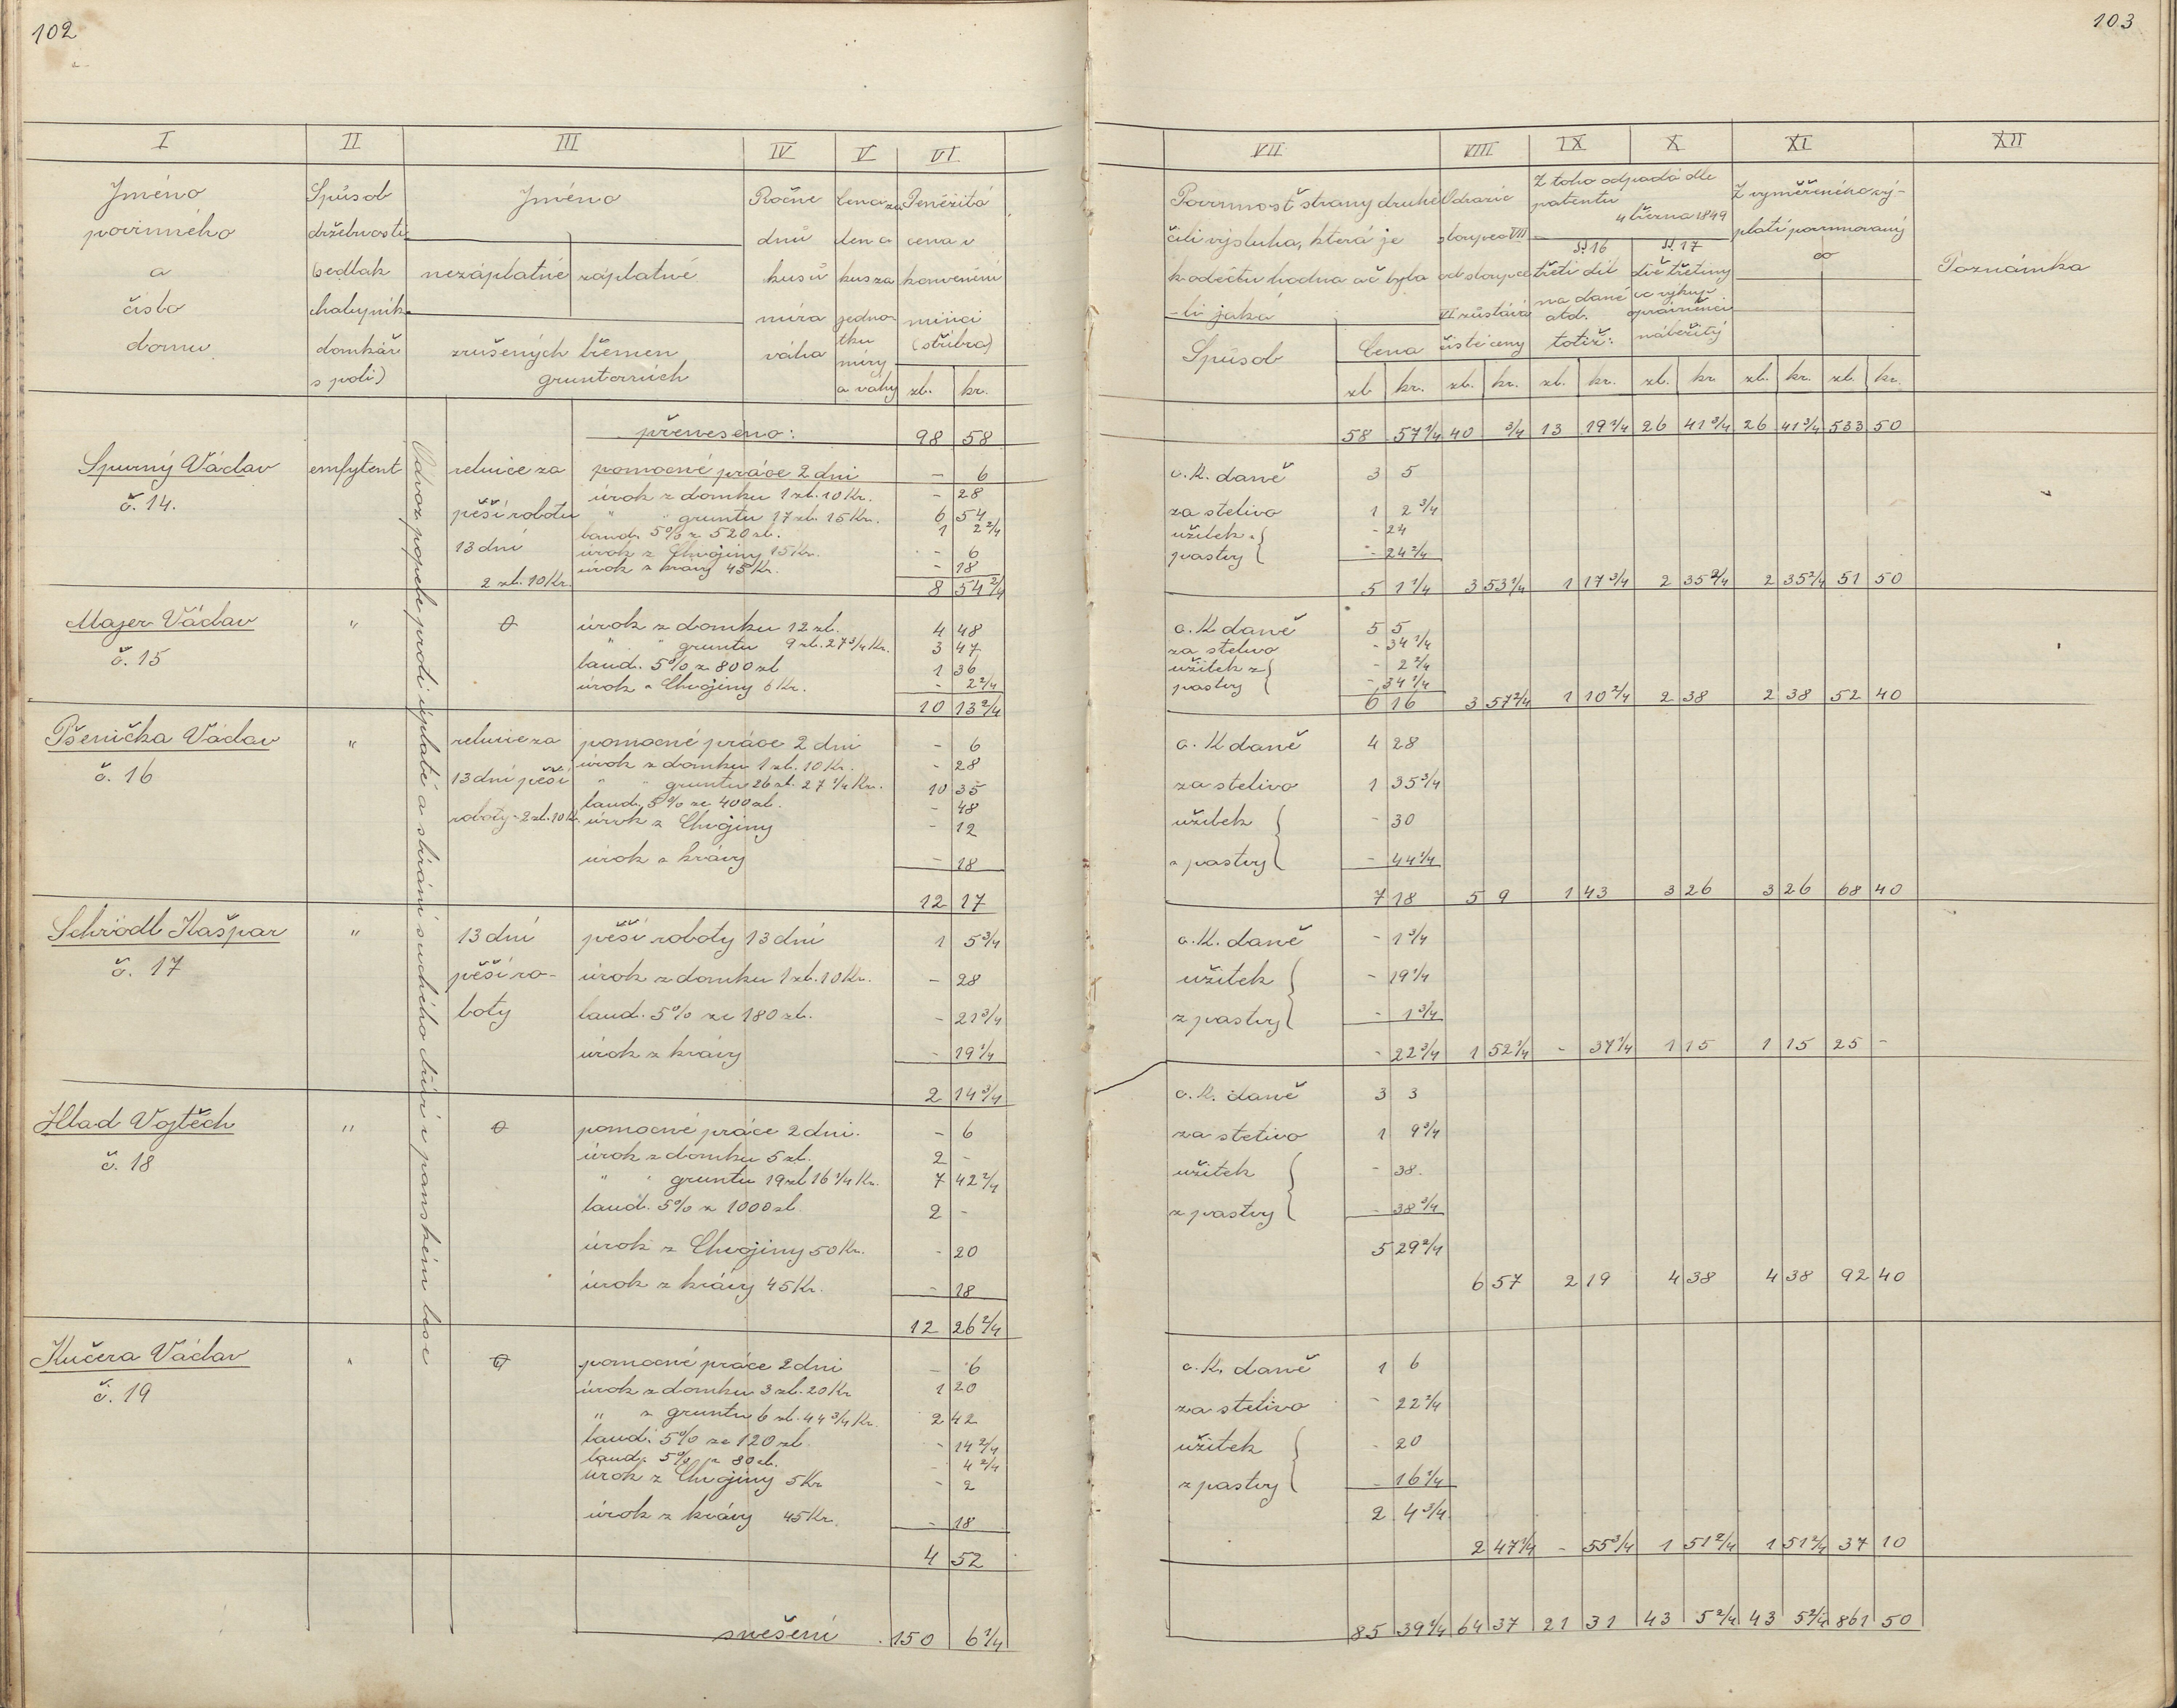 102
I II III IV V VI
Jméno povinného a číslo domu
Spůsob držebnosti (sedlák chalupník domkář s polí)
Jméno
nezáplatné záplatné
zrušených břemen gruntovních
Ročně dnů kusů míra váha
Cena za den a kus za jedno- tku míry a váhy
Peněžitá cena v konvenční minci (stříbra)
zl. kr.
přeneseno: 98 58
Odvoz popele proti úplatě a sbírání suchého dříví v panském lese
Spurný Václav emfytent reluice za pomocné práce 2 dni - 6
č. 14. úrok z domku 1 zl. 10 Kr. - 28
pěší robotu " " gruntu 17 zl. 15 Kr. 6 54
laud. 5% z 520 zl. 1 2 2/4
13 dní úrok z Chvojiny 15 Kr. - 6
úrok z krávy 45 Kr. - 18
2 zl. 10 Kr. 8 54 2/4
Majer Václav " 0 úrok z domku 12 zl. 4 48
č. 15 " " gruntu 9 zl. 27 3/4 Kr. 3 47
laud. 5% z 800 zl 1 36
úrok z Chvojiny 6 Kr. - 2 2/4
10 13 2/4
Pšenička Václav " reluice za pomocné práce 2 dni - 6
č. 16 úrok z domku 1 zl. 10 Kr. - 28
13 dní pěší " " gruntu 26 zl. 27 1/4 Kr. 10 35
laud. 5% ze 400 zl. - 48
roboty - 2 zl. 10 Kr. úrok z Chvojiny - 12
úrok z krávy - 18
12 17
Schrödl Kašpar " 13 dní pěší roboty 13 dní 1 5 3/4
č. 17 pěší ro- úrok z domku 1 zl. 10 Kr. - 28
boty laud. 5% ze 180 zl. - 21 3/4
úrok z krávy - 19 1/4
2 14 3/4
Hlad Vojtěch " 0 pomocné práce 2 dni. - 6
č. 18 úrok z domku 5 zl. 2 -
" " gruntu 19 zl 16 1/4 Kr. 7 42 2/4
laud. 5% z 1000 zl. 2 -
úrok z Chvojiny 50 Kr. - 20
úrok z krávy 45 Kr. - 18
12 26 2/4
Kučera Václav " 0 pomocné práce 2 dni - 6
č. 19 úrok z domku 3 zl. 20 Kr 1 20
" z gruntu 6 zl. 44 3/4 Kr. 2 42
laud. 5% ze 120 zl. - 14 2/4
laud. 5% z 80 zl. - 4 2/4
úrok z Chvojiny 5 Kr - 2
úrok z krávy 45 Kr. - 18
4 52
snešení 150 6 1/4
103
VII VIII IX X XI XII
Povinnost strany druhé čili výsluha, která je k odečtu hodna ač byla -li jaká
Spůsob Cena
Odrazíc sloupec VII od sloupce VI zůstává čisté ceny
Z toho odpadá dle patentu 4 března 1849
§§ 16 třetí díl na daně atd. totiž:
§§ 17 dvě třetiny co výkup oprávněnci náležitý
Z vyměřeného vý- platí povinovaný
Poznámka
zl kr. zl. kr. zl. kr. zl. kr zl. kr. zl. kr.
58 57 1/4 40 3/4 13 19 1/4 26 41 3/4 26 41 3/4 533 50
c. K. daně 3 5
za stelivo 1 2 3/4
užitek z - 24
pastvy - 24 2/4
5 1 1/4 3 53 1/4 1 17 3/4 2 35 2/4 2 35 2/4 51 50
c. K daně 5 5
za stelivo - 34 1/4
užitek z - 2 2/4
pastvy - 34 1/4
6 16 3 57 2/4 1 10 2/4 2 38 2 38 52 40
c. K daně 4 28
za stelivo 1 35 3/4
užitek - 30
z pastvy - 44 1/4
7 18 5 9 1 43 3 26 3 26 68 40
c. K. daně - 1 3/4
užitek - 19 1/4
z pastvy - 1 3/4
- 22 3/4 1 52 1/4 - 37 1/4 1 15 1 15 25 -
c. K. daně 3 3
za stelivo 1 9 3/4
užitek - 38
z pastvy - 38 3/4
5 29 2/4
6 57 2 19 4 38 4 38 92 40
c. K. daně 1 6
za stelivo - 22 2/4
užitek - 20
z pastvy - 16 1/4
2 4 3/4
2 47 1/4 - 55 3/4 1 51 2/4 1 51 2/4 37 10
85 39 1/4 64 37 21 31 43 5 2/4 43 5 2/4 861 50